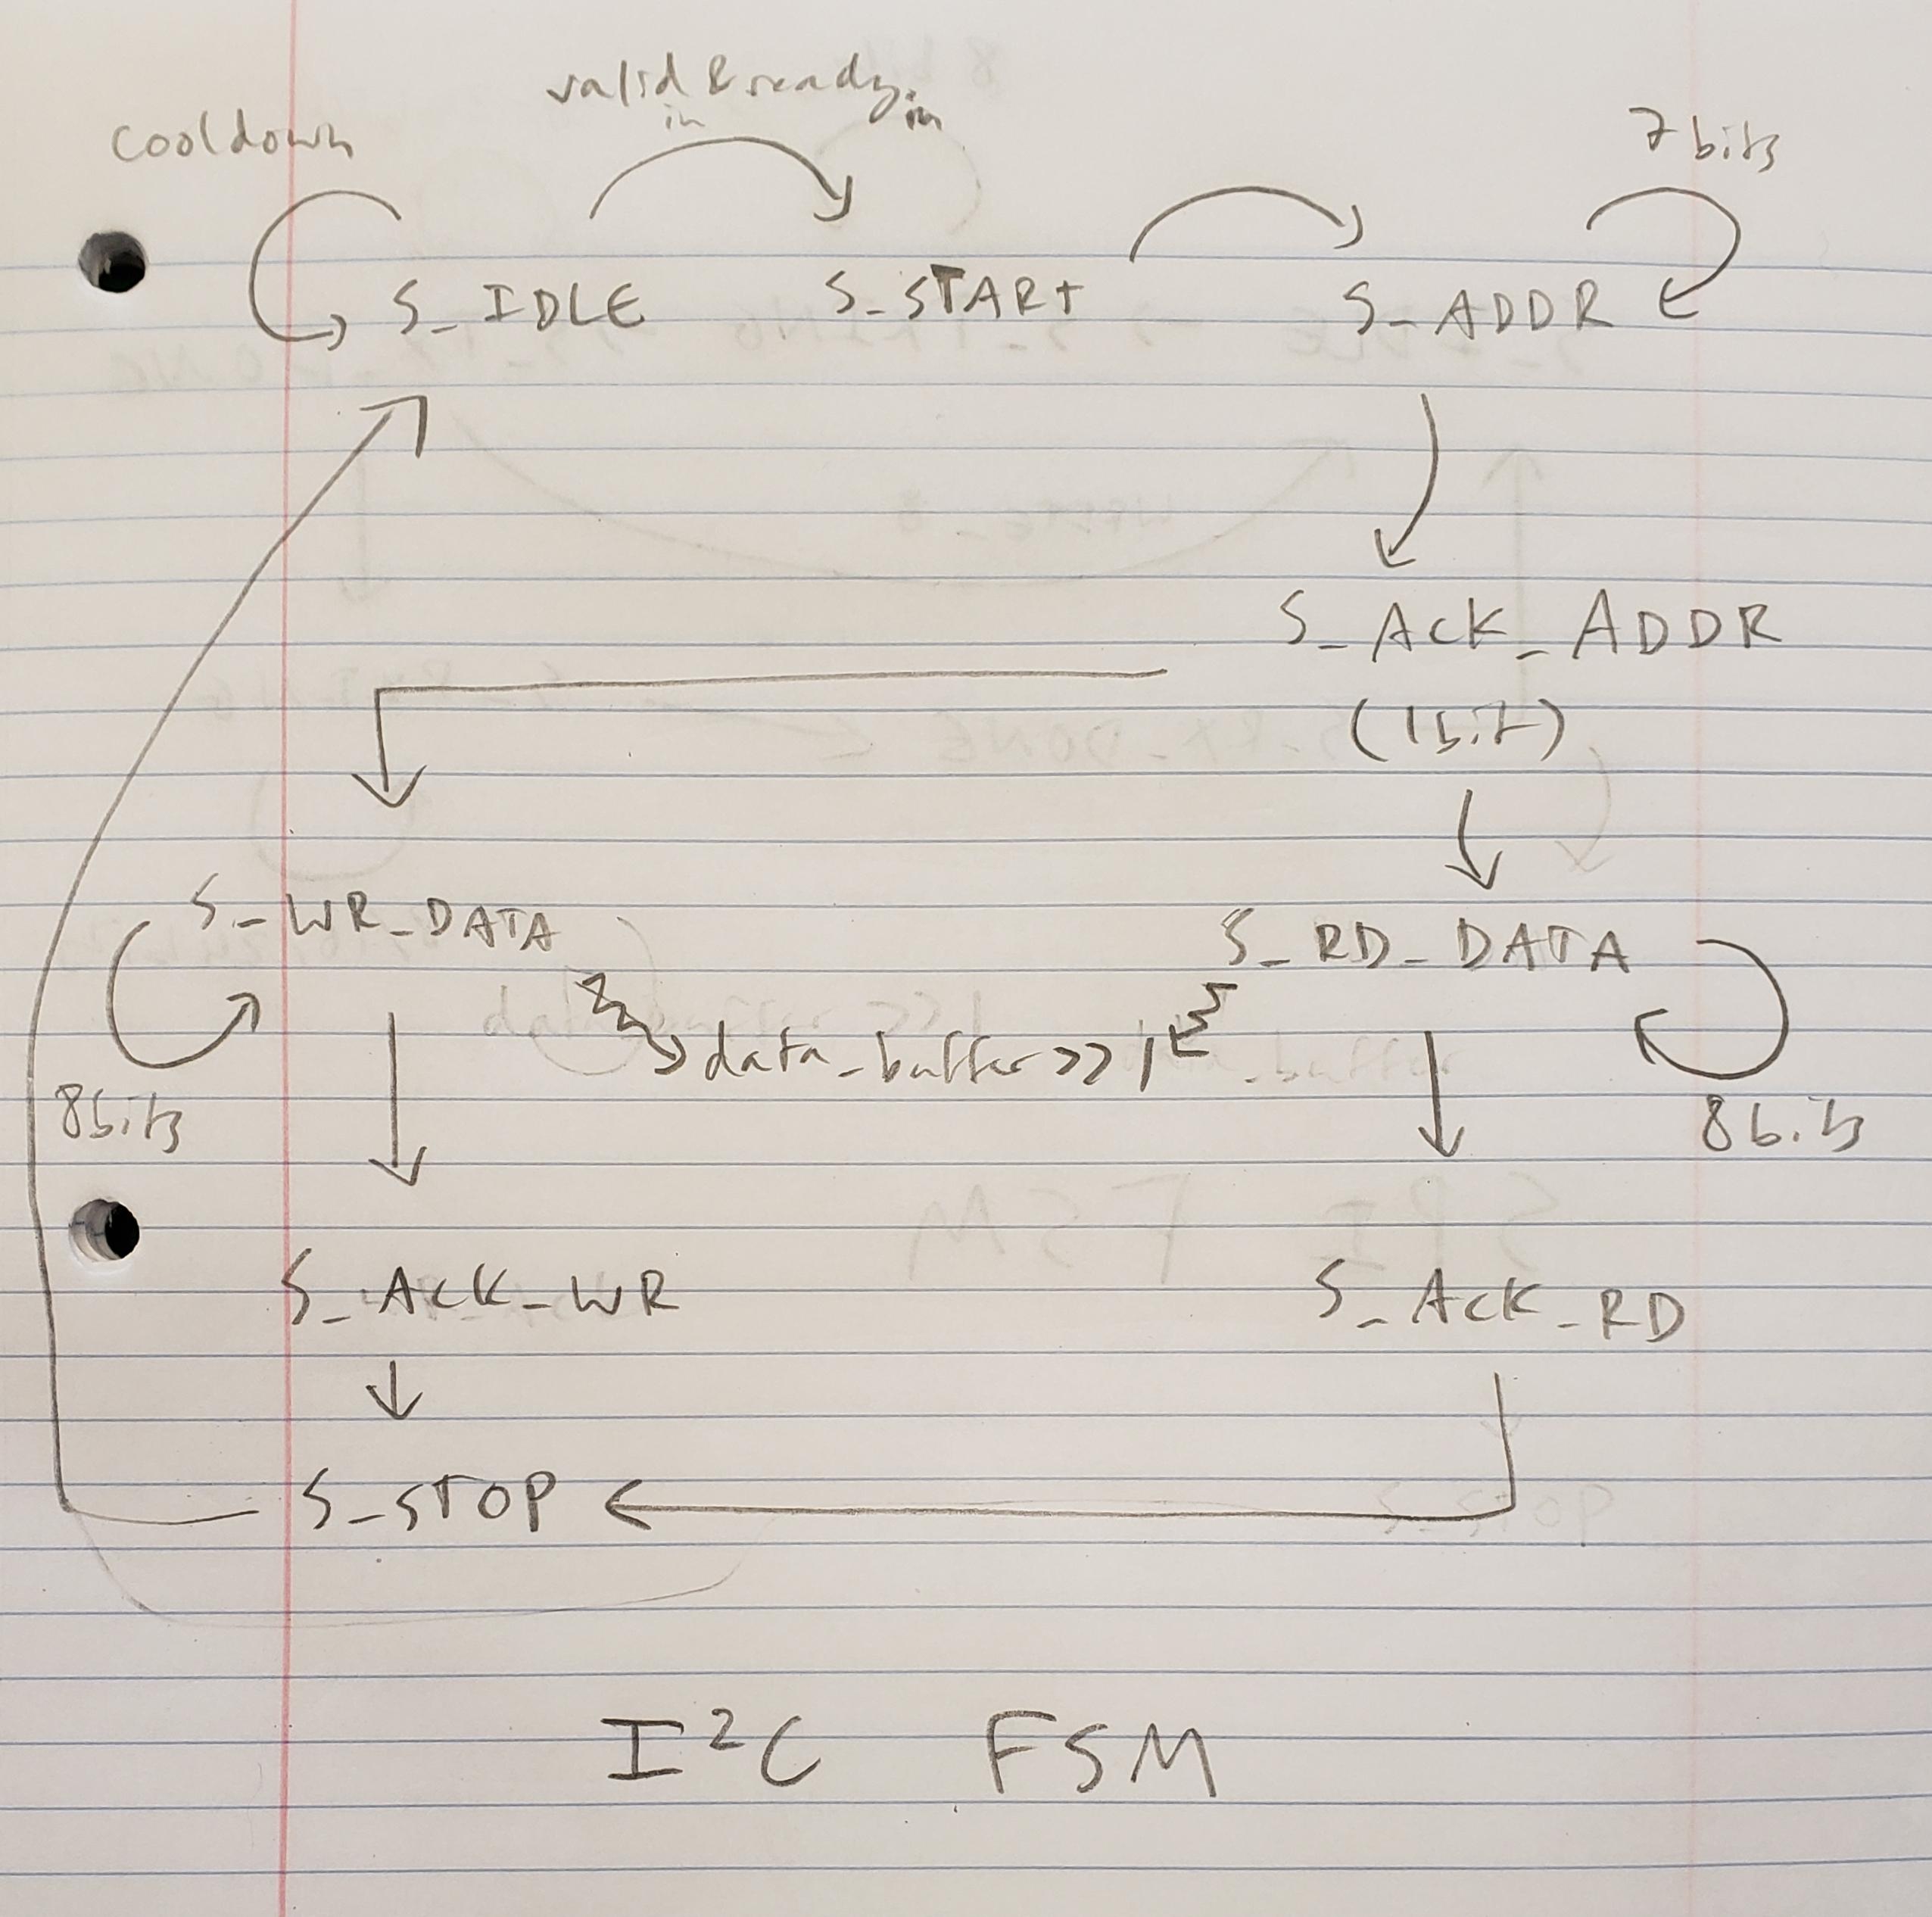 cooldown
valid & ready
in in
7 bits
S_IDLE S_START S_ADDR
S_ACK_ADDR
(1 bit)
S_WR_DATA S_RD_DATA
data_buffer >> 1
8 bits 8 bits
S_ACK_WR S_ACK_RD
S_STOP
I²C FSM